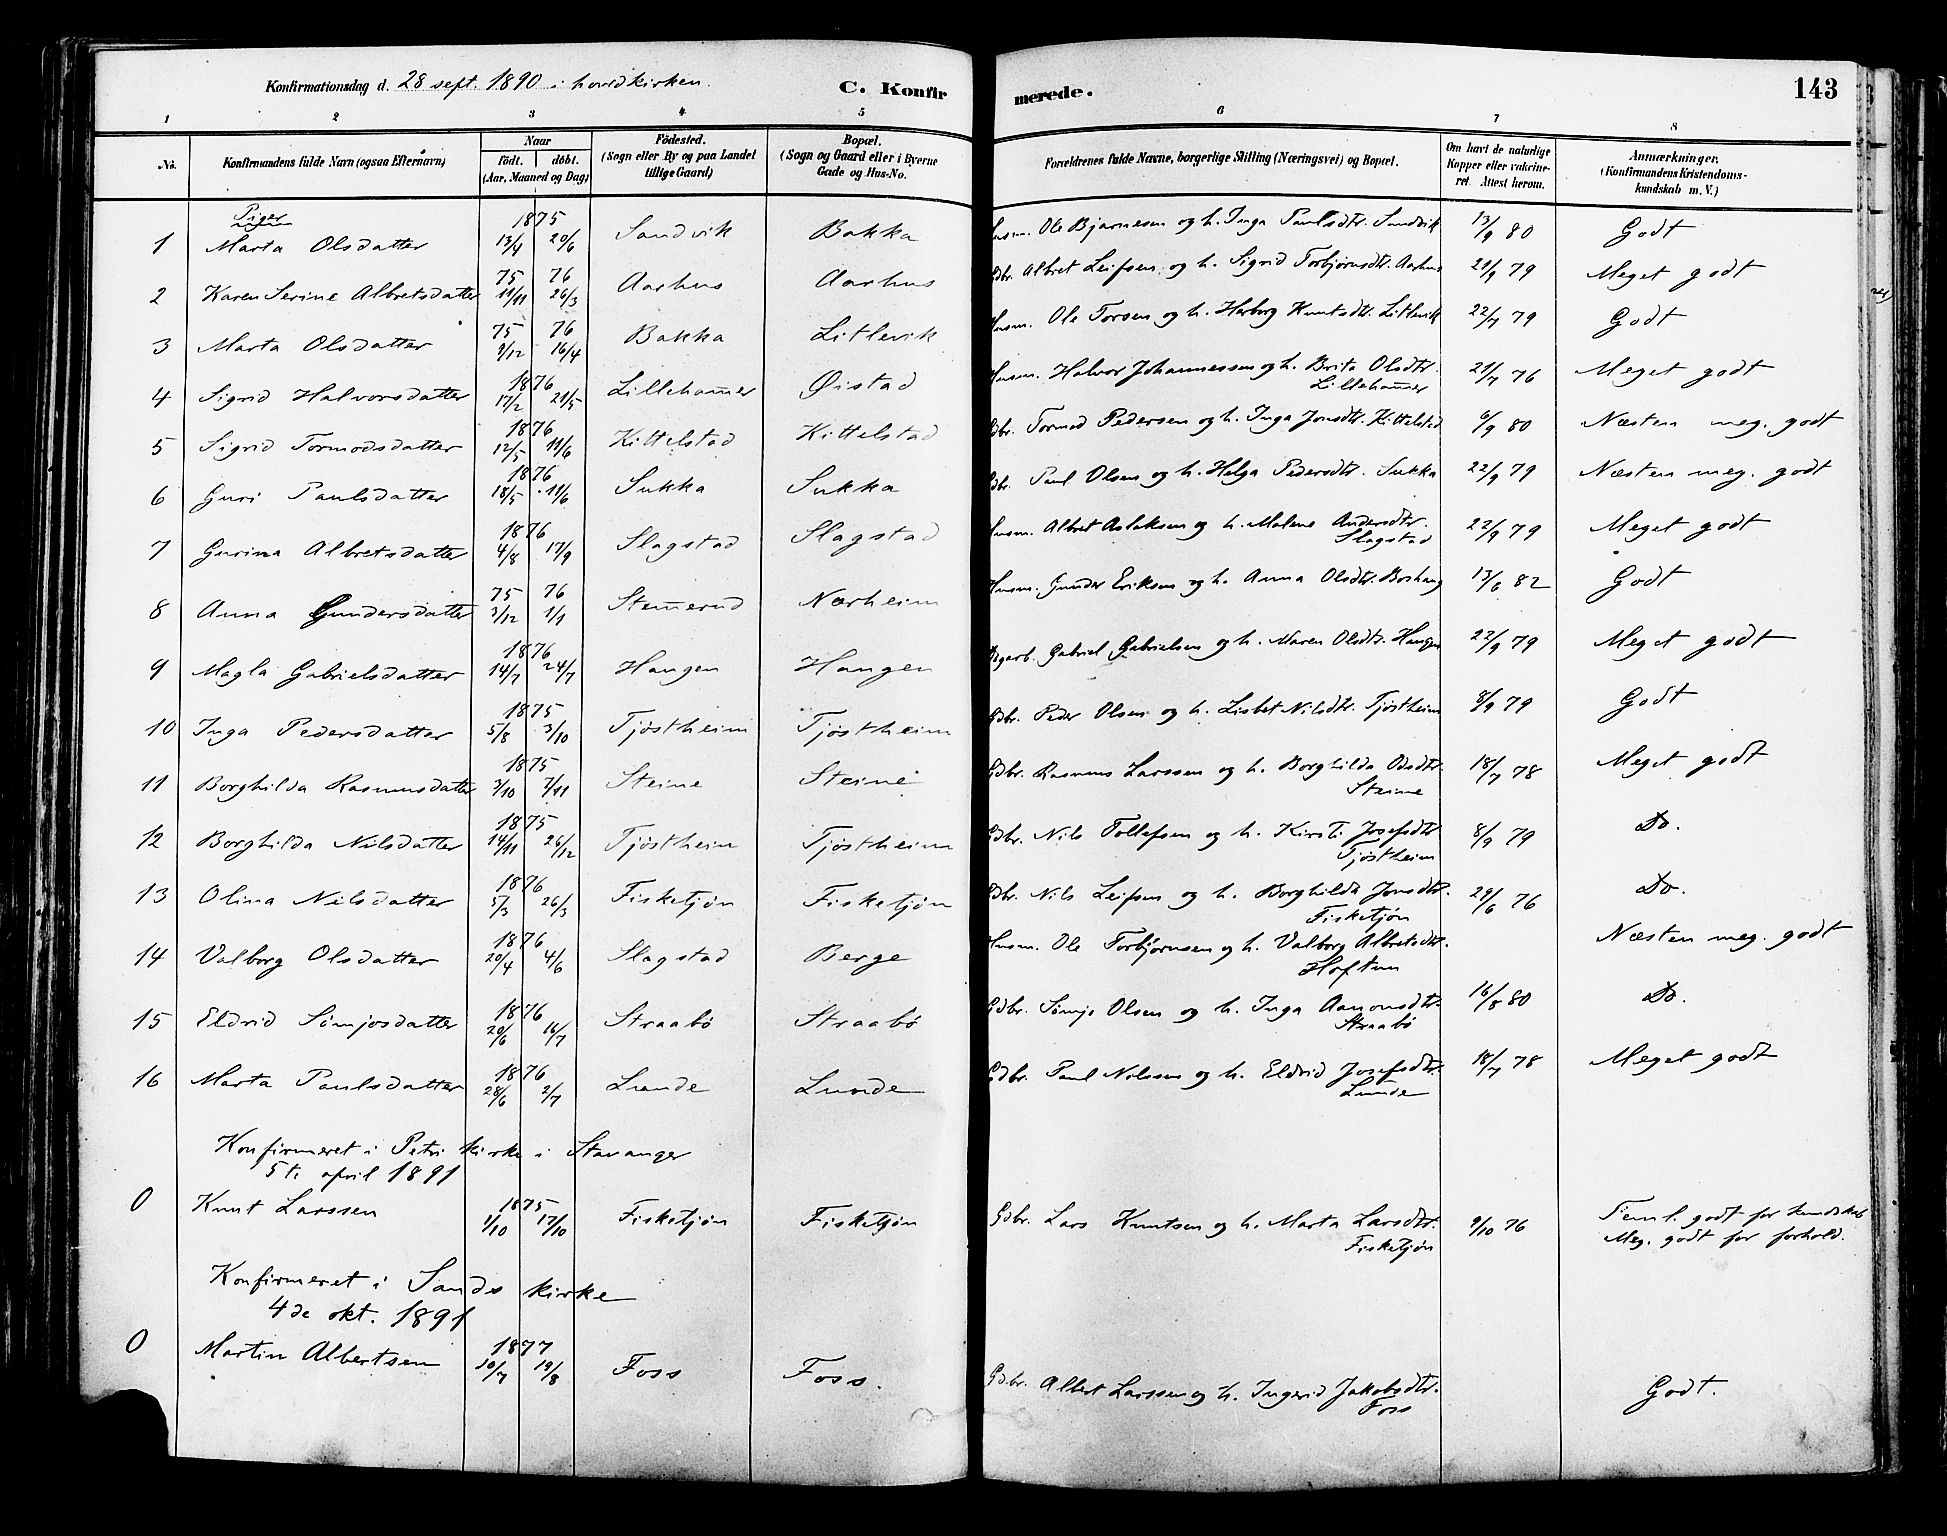 Konfirmationsdag d. 28 sept. 1890 i hovedkirken.
C. Konfirmerede.
143
1 2 3 4 5 6 7 8
No. Konfirmandens fulde Navn (ogsaa Efternavn) Naar födt. döbt. (Aar, Maaned og Dag) Födested. (Sogn eller By og paa Landet tillige Gaard) Bopæl. (Sogn og Gaard eller i Byerne Gade og Hus-No. Forældrenes fulde Navne, borgerlige Stilling (Næringsvei) og Bopæl. Om havt de naturlige Kopper eller vakcineret. Attest herom. Anmærkninger. (Konfirmandens Kristendomskundskab m. V.)
Piger
1 Marta Olsdatter 1875 13/4 20/6 Sandvik Bakka Husm. Ole Bjarnesen og h. Inga Paulsdtr. Sandvik 13/9 80 Godt
2 Karen Serine Albretsdatter 75 11/11 76 26/3 Aarhus Aarhus Gdbr. Albret Leifsen og h. Sigrid Torbjørnsdtr. Aarhus 21/9 79 Meget godt
3 Marta Olsdatter 75 9/12 76 16/4 Bakka Litlevik Husm. Ole Torsen og h. Herborg Knutsdtr. Litlevik 22/7 79 Godt
4 Sigrid Halvorsdatter 1876 17/2 21/5 Lillehammer Øistad Husm. Halvor Johannessen og h. Brita Olsdtr. Lillehammer 21/7 76 Meget godt
5 Sigrid Tormodsdatter 1876 12/5 11/6 Kittelstad Kittelstad Gdbr. Tormod Pedersen og h. Inga Jonsdtr. Kittelstad 6/9 80 Næsten meg. godt
6 Guri Paulsdatter 1876 18/5 11/6 Sukka Sukka Gdbr. Paul Olsen og h. Helga Pedersdtr. Sukka 22/9 79 Næsten meg. godt
7 Gurina Albretsdatter 1876 4/8 17/9 Slagstad Slagstad Husm. Albret Aslaksen og h. Malene Andersdtr. Slagstad 22/9 79 Meget godt
8 Anna Gundersdatter 75 3/12 76 1/1 Stemerud Nærheim Husm. Gunder Eriksen og h. Anna Olsdtr. Boshaug 13/6 82 Godt
9 Magla Gabrielsdatter 1876 14/7 24/7 Haugen Haugen Gabriel Gabrielsen og h. Maren Olsdtr. Haugen 22/9 79 Meget godt
10 Inga Pedersdatter 1875 5/8 3/10 Tjøstheim Tjøstheim Gdbr. Peder Olsen og h. Lisbet Nilsdtr. Tjøstheim 8/9 79 Godt
11 Borghilda Rasmusdatter 1875 3/10 7/11 Steine Steine Gdbr. Rasmus Larssen og h. Borghilda Odsdtr. Steine 18/7 78 Meget godt
12 Borghilda Nilsdatter 1875 14/11 26/12 Tjøstheim Tjøstheim Gdbr. Nils Tollefsen og h. Kirsti Josefsdtr. Tjøstheim 8/9 79 Do.
13 Olina Nilsdatter 1876 5/3 26/3 Fisketjøn Fisketjøn Gdbr. Nils Leifsen og h. Borghilda Jonsdtr. Fisketjøn 29/6 76 Do.
14 Valborg Olsdatter 1876 20/4 4/6 Slagstad Berge Husm. Ole Torbjørnsen og h. Valborg Albretsdtr. Hoftun Næsten meg. godt
15 Eldrid Sømjosdatter 1876 20/6 16/7 Straabø Straabø Gdbr. Sømjo Olsen og h. Inga Aanonsdtr. Straabø 16/8 80 Do.
16 Marta Paulsdatter 1876 28/6 2/7 Lunde Lunde Gdbr. Paul Nilssen og h. Eldrid Josefsdtr. Lunde 18/7 78 Meget godt
Konfirmeret i Petri kirke i Stavanger
5te april 1891
0 Knut Larssen 1875 1/10 17/10 Fisketjøn Fisketjøn Gdbr. Lars Knutsen og h. Marta Larsdtr. Fisketjøn 9/10 76 Teml. godt for kundskab Meg. godt for forhold.
Konfirmeret i Sands kirke
4de okt. 1891
0 Martin Albertsen 1877 10/7 19/8 Foss Foss. Gdbr. Albert Larssen og h. Ingerid Jakobsdtr. Foss Godt.